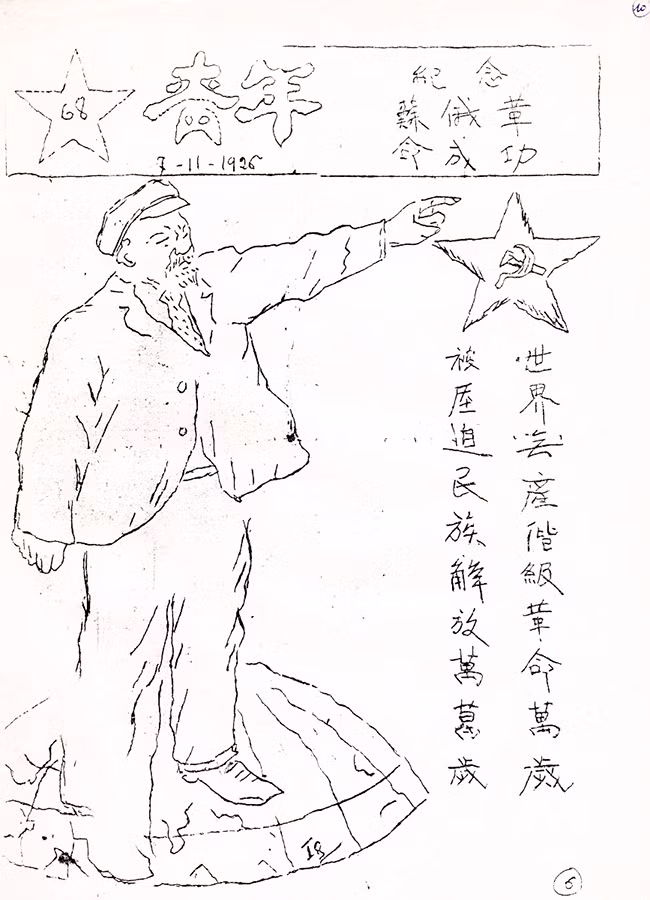 10
68
青年
7-11-1926
紀念
蘇俄革
命成功
世界无產偕級革命萬歲
被压迫民族解放萬萬歲
6